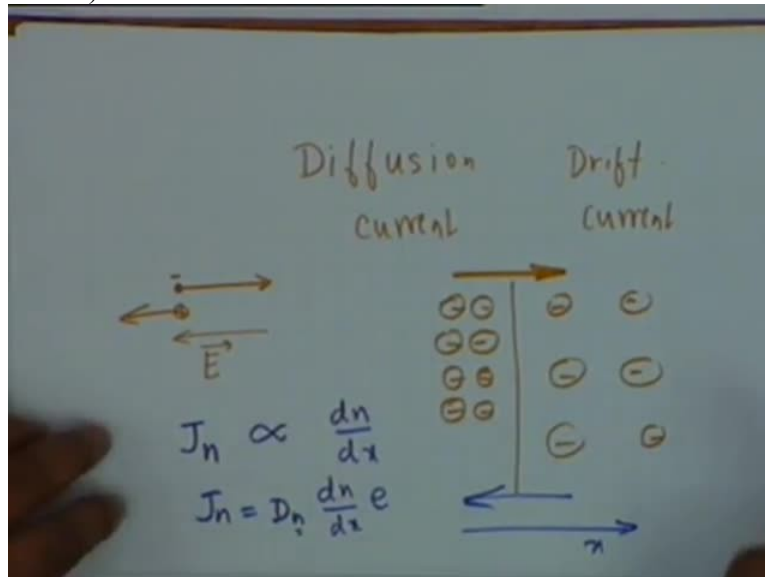 Diffusion current
Drift current
-
E
J_n ∝ dn/dx
J_n = D_n dn/dx e
x